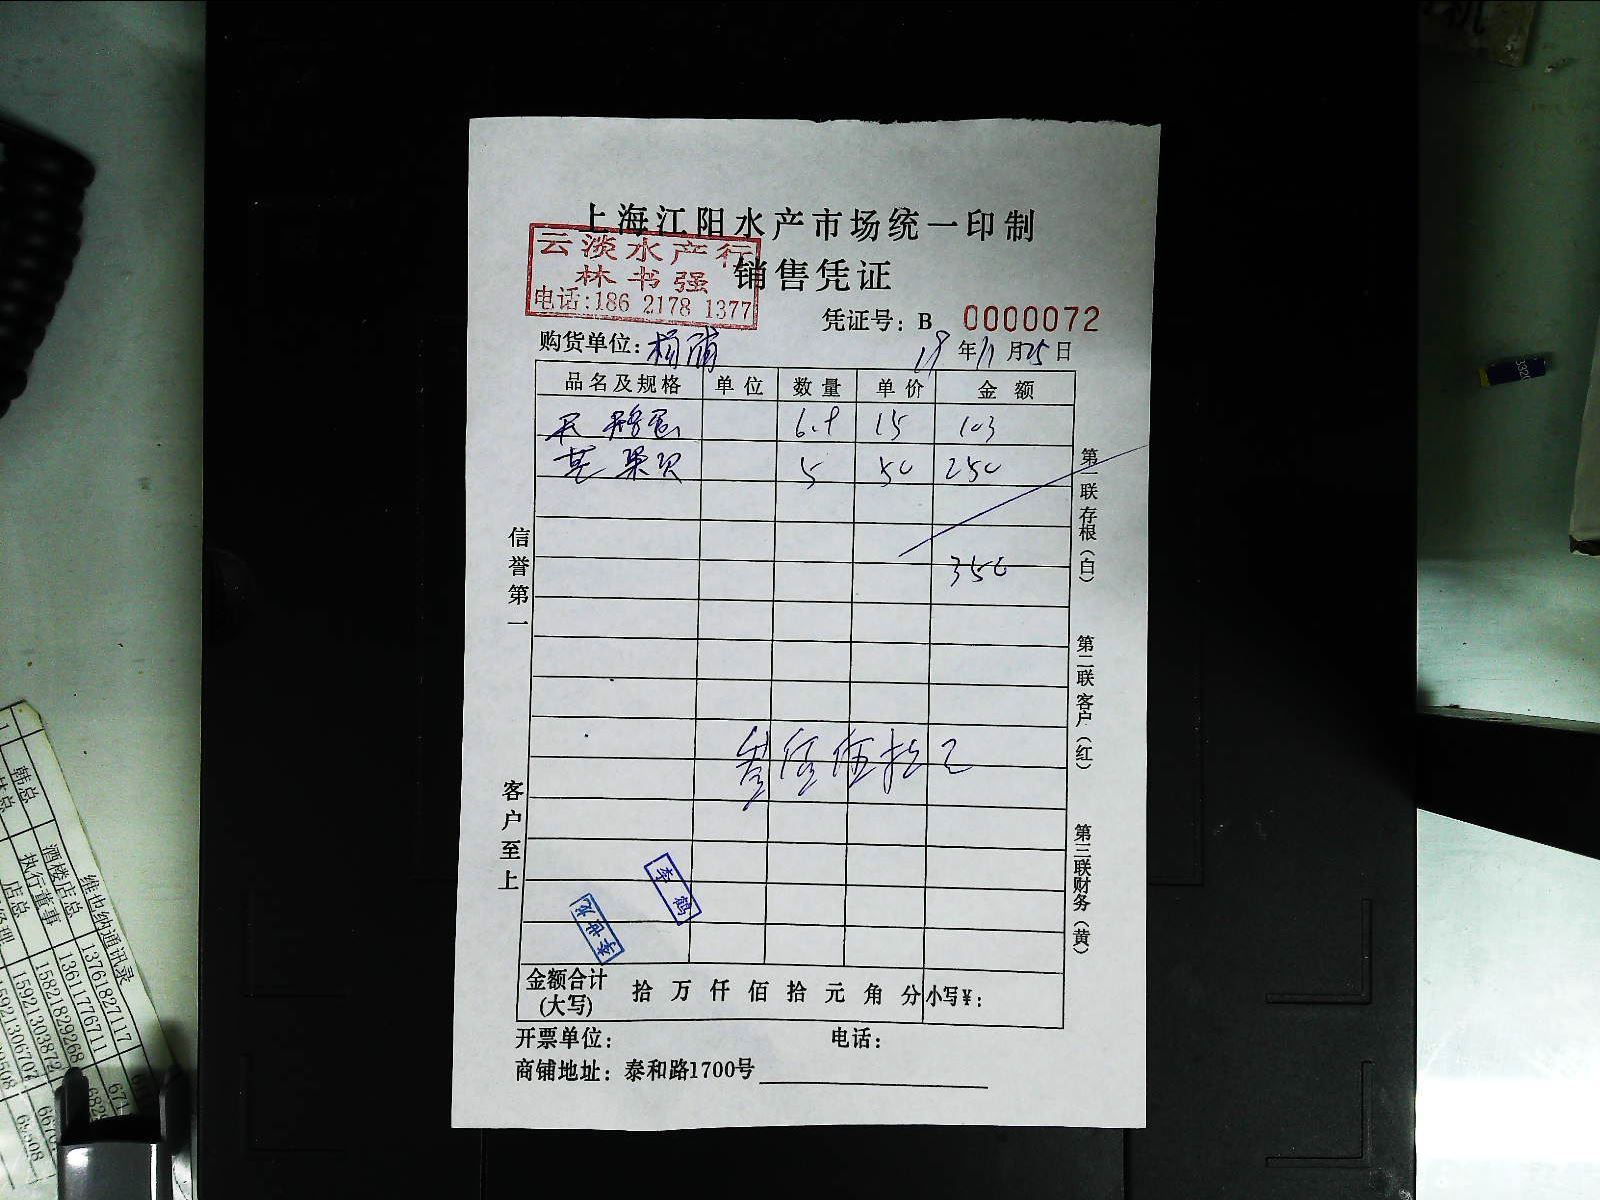 上海江阳水产市场统一印制
销售凭证
云淡水产行
林书强
电话:186 2178 1377
凭证号: B 0000072
购货单位: 杨浦
19年11月25日
品名及规格 单位 数量 单价 金额
6.9 15 103
5 50 250
350
叁佰伍拾元
信誉第一
客户至上
第一联存根(白)
第二联客户(红)
第三联财务(黄)
李鹤
李世龙
金额合计(大写) 拾万仟佰拾元角分 小写¥:
开票单位: 电话:
商铺地址: 泰和路1700号
维也纳通讯录
韩总 13761827117
酒楼店总 13611776711
执行董事 15821829268
店总 15921303872
15921306707